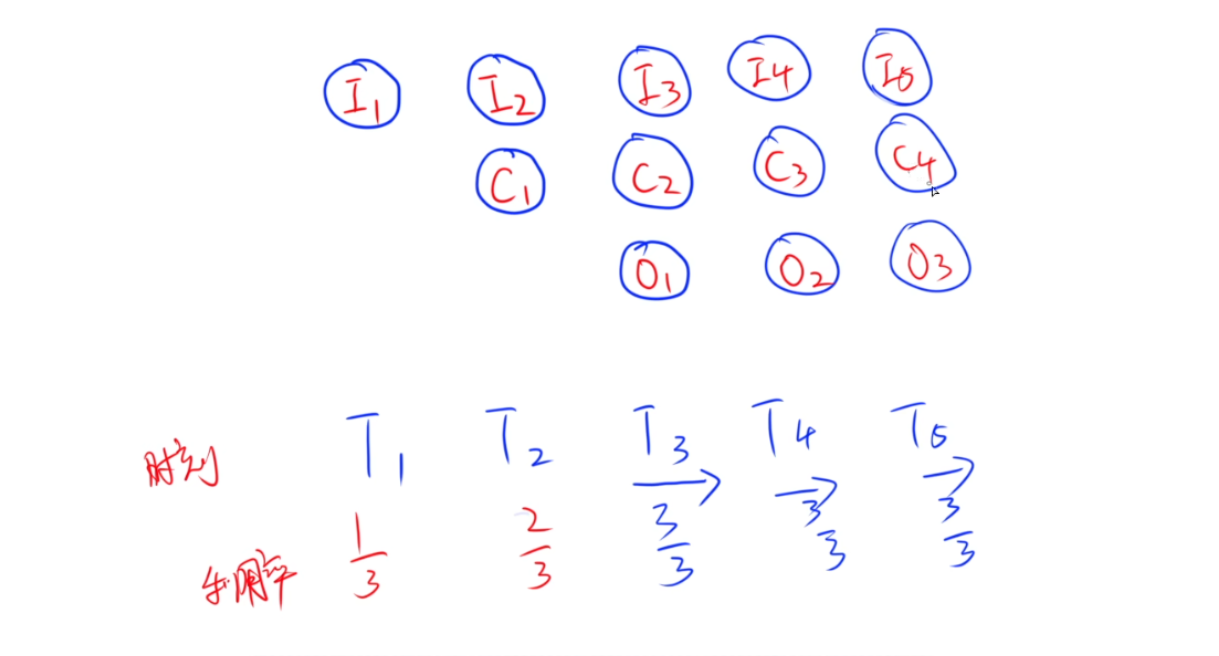 I1 I2 I3 I4 I5
C1 C2 C3 C4
O1 O2 O3
时刻 T1 T2 T3 T4 T5
利用率 1/3 2/3 3/3 3/3 3/3